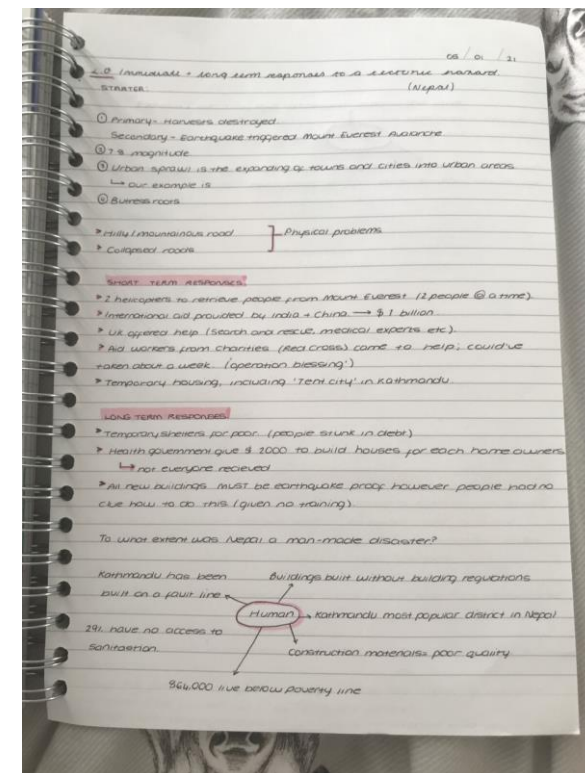 05 / 01 / 21
2.0 Immediate + long term responses to a tectonic hazard.
STARTER: (Nepal)
① Primary - Harvests destroyed.
Secondary - Earthquake triggered Mount Everest Avalanche
② 7.8 magnitude
③ Urban sprawl is the expanding of towns and cities into urban areas
↳ our example is
④ Butress roots
➤ Hilly / mountainous road ] Physical problems
➤ Collapsed roads
SHORT TERM RESPONSES
➤ 2 helicopters to retrieve people from Mount Everest (2 people @ a time).
➤ International aid provided by India + China → $ 1 billion
➤ UK offered help (search and rescue, medical experts etc)
➤ Aid workers from charities (Red Cross) came to help; could've
taken about a week. (operation blessing')
➤ Temporary housing, including 'Tent city' in Kathmandu.
LONG TERM RESPONSES
➤ Temporary shelters for poor. (people stunk in debt)
➤ Health government give $ 2000 to build houses for each home owners
↳ not everyone recieved
➤ All new buildings must be earthquake proof however people had no
clue how to do this (given no training)
To what extent was Nepal a man-made disaster?
Kathmandu has been Buildings built without building regulations
built on a fault line
Human → Kathmandu most popular district in Nepal
29% have no access to
sanitastion. Construction materials= poor quality
864,000 live below poverty line